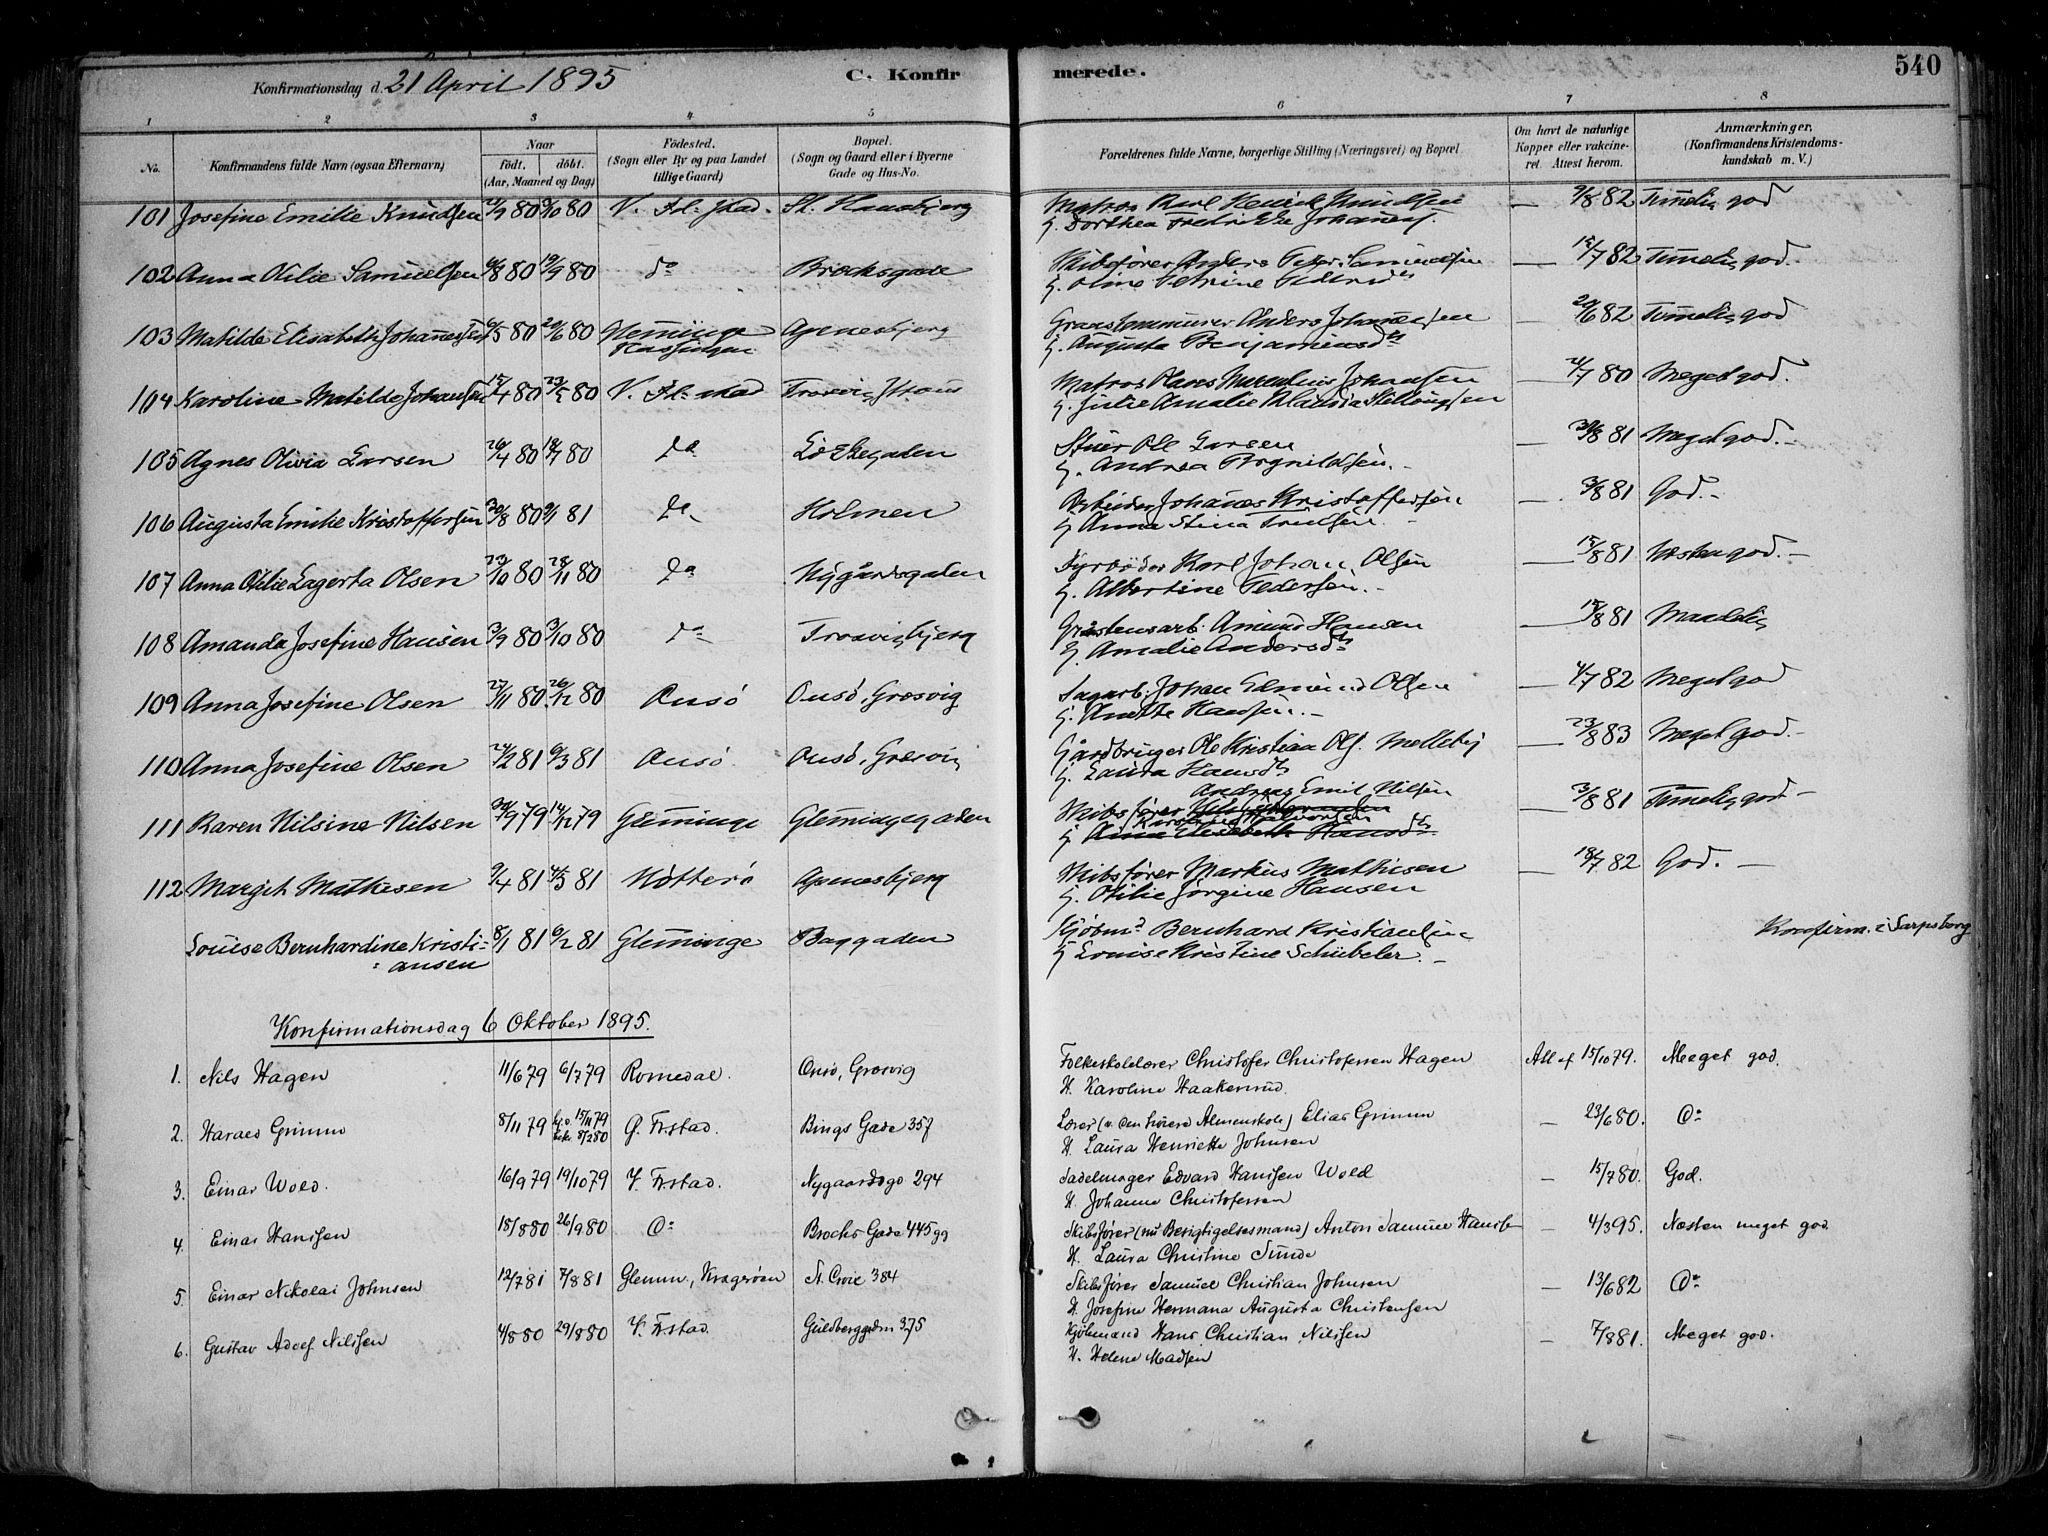 540
Konfirmationsdag d. 21 April 1895
C. Konfirmerede.
1 2 3 4 5 6 7 8
No.
Konfirmandens fulde Navn (ogsaa Efternavn)
Naar
født. døbt.
(Aar, Maaned og Dag)
Födested.
(Sogn eller By og paa Landet
tillige Gaard)
Bopæl.
(Sogn og Gaard eller i Byerne
Gade og Hus-No.
Forældrenes fulde Navne, borgerlige Stilling (Næringsvei) og Bopæl
Om havt de naturlige
Kopper eller vakcine-
ret. Attest herom.
Anmærkninger.
(Konfirmandens Kristendoms-
kundskab m. V.)
101 Josefine Emilie Knudsen 9 80 10 80 V. Fr.stad. St. Hansbjerg Matros Karl Henrik Knudsen — 9/8 82 Temmelig god
H. Dorthea Fredrikke Johannesen
102 Anna Otilie Samuelsen 8 80 19/9 80 do Brochsgade Skibsfører Anders Peter Samuelsen — 15/7 82 Temmelig god.
H. Oline Petrine Pedersd
103 Matilde Elisabeth Johannessen 5 80 20/6 80 Glemminge Apenesbjerg Anders Johannessen — 20/6 82 Temmelig god
H. Augusta Benjaminsdtr
104 Karoline Matilde Johansen 15/4 80 23/5 80 V. Fr.stad Trosvig Matros Hans Johansen — 7 80 Meget god.
H. Julie Amalie
105 Agnes Olivia Larsen 26/4 80 18/7 80 do Løkkegaden Stuer Ole Larsen — 30/8 81 Meget god.
H. Andrea
106 Augusta Emilie Kristoffersen 30/8 80 9/1 81 do Holmen Arbeider Johannes Kristoffersen — 3/8 81 God.
H. Anna Stina
107 Anna Otilie Lagerta Olsen 23/10 80 28/11 80 do Nygårdsgaden Fyrbøder Karl Johan Olsen — 15/8 81 Næsten god.
H. Albertine Pedersen.
108 Amanda Josefine Hansen 3/9 80 3/10 80 do Trosvigbjerg Gråstensarb. Amund Hansen — 15/8 81 Maadelig
H. Amalie Andersdtr
109 Anna Josefine Olsen 27/11 80 26/12 80 Onsø Onsø, Græsvig Sagarb. Johan Edmund Olsen — 4/7 82 Meget god
H. Anette Hansen.
110 Anna Josefine Olsen 24/2 81 6/3 81 Onsø. Onsø, Græsvig Gårdbruger Ole Kristian Ols. Melleby — 23/8 83 Meget god.
H. Laura Hansdtr
Andreas Emil Nilsen
111 Karen Nilsine Nilsen 30/9 79 14/12 79 Glemminge Glemmingegaden Skibsfører — 3/8 81 Temmelig god.
H. Anna Elisabeth Hansdtr
112 Margit Mathisen 9/4 81 4/5 81 Nøtterø Apenesbjerg Skibsfører Markus Mathisen — 18/7 82 God.
H. Otilie Jørgine Hansen
Louise Bernhardine Kristi- 8/1 81 6/2 81 Glemminge Baggaden Kjøbmd Bernhard Kristiansen Konfirm. i Sarpsborg
ansen H. Louise Kristine Schübeler.
Konfirmationsdag 6 Oktober 1895.
1. Nils Hagen 11/6 79 6/7 79 Romedal. Onsø, Græsvig Folkeskolelærer Christofer Christofersen Hagen Att. af 15/10 79. Meget god.
H. Karoline Haakenrud
2. Harald Grimm 8/11 79 hj.d. 15/11 79 Ø. Frstad. Bings Gade 357 Lærer (v. den høiere Almenskole) Elias Grimm — 23/6 80. do
bek. 8/2 80 H. Laura Henriette Johnsen
3. Einar Wold. 16/9 79 19/10 79 V. Frstad. Nygaardsgd 294 Sadelmager Edvard Hanssen Wold — 15/7 80. God.
H. Johanne Christofersen
4. Einar Hanssen 15/8 80 26/9 80 do Brochs Gade 445 gg Skibsfører (nu Besigtigelsesmand) Anton Samuel Hanssen — 4/3 95. Næsten meget god
H. Laura Christine Sunde
5. Einar Nikolai Johnsen 12/7 81 7/8 81 Glemm., Kragerøen St. Croix 384 Skibsfører Samuel Christian Johnsen — 13/6 82 do
H. Josefine Hermana Augusta Christensen
6. Gustav Adolf Nilssen 4/8 80 29/8 80 V. Frstad. Guldberggaden 375 Kjøbmand Hans Christian Nilssen — 7/8 81. Meget god.
H. Helene Madsen